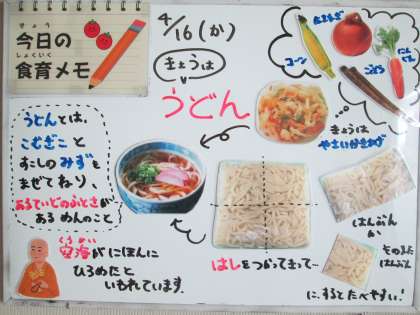 きょう
今日の
しょくいく
食育メモ
4/16(か)
きょうは
うどん
たまねぎ
コーン
ごぼう
にんじん
きょうは
やさいかきあげ
うどんとは、
こむぎこと
すこしのみずを
まぜてねり、
あるていどのふとさが
あるめんのこと
くうかい
空海がにほんに
ひろめたと
いわれています。
はしをつかってきって〜
はんぶんか
そのまたはんぶん
に、するとたべやすい!